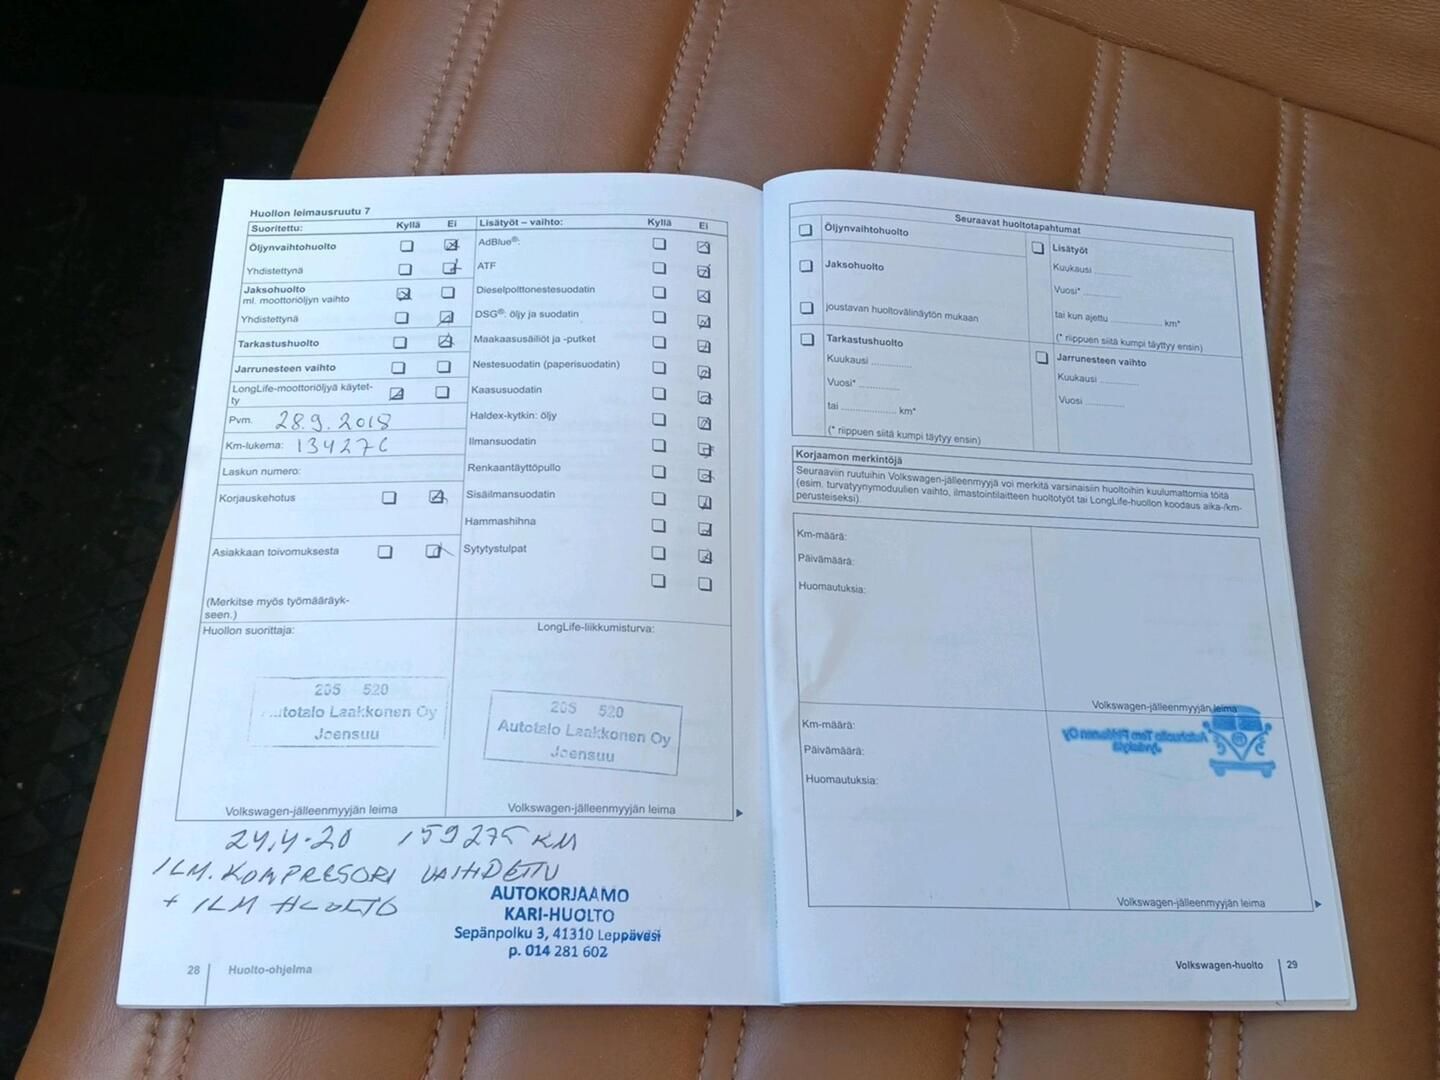 Huollon leimausruutu 7
Suoritettu: Kyllä Ei
Öljynvaihtohuolto
Yhdistettynä
Jaksohuolto
ml. moottoriöljyn vaihto
Yhdistettynä
Tarkastushuolto
Jarrunesteen vaihto
LongLife-moottoriöljyä käytet-
ty
Pvm. 28.9.2018
Km-lukema: 134276
Laskun numero:
Korjauskehotus
Asiakkaan toivomuksesta
(Merkitse myös työmääräyk-
seen.)
Lisätyöt – vaihto: Kyllä Ei
AdBlue®:
ATF
Dieselpolttonestesuodatin
DSG®: öljy ja suodatin
Maakaasusäiliöt ja -putket
Nestesuodatin (paperisuodatin)
Kaasusuodatin
Haldex-kytkin: öljy
Ilmansuodatin
Renkaantäyttöpullo
Sisäilmansuodatin
Hammashihna
Sytytystulpat
Huollon suorittaja:
205 520
Autotalo Laakkonen Oy
Joensuu
Volkswagen-jälleenmyyjän leima
LongLife-liikkumisturva:
205 520
Autotalo Laakkonen Oy
Joensuu
Volkswagen-jälleenmyyjän leima
24.4.20 159275 KM
ILM. KOMPRESORI VAIHDETTU
+ ILM HUOLTO
AUTOKORJAAMO
KARI-HUOLTO
Sepänpolku 3, 41310 Leppävesi
p. 014 281 602
28 Huolto-ohjelma
Seuraavat huoltotapahtumat
Öljynvaihtohuolto
Jaksohuolto
joustavan huoltovälinäytön mukaan
Tarkastushuolto
Kuukausi ............
Vuosi* ............
tai ................ km*
(* riippuen siitä kumpi täytyy ensin)
Lisätyöt
Kuukausi ............
Vuosi* ............
tai kun ajettu ................ km*
(* riippuen siitä kumpi täyttyy ensin)
Jarrunesteen vaihto
Kuukausi ............
Vuosi ............
Korjaamon merkintöjä
Seuraaviin ruutuihin Volkswagen-jälleenmyyjä voi merkitä varsinaisiin huoltoihin kuulumattomia töitä
(esim. turvatyynymoduulien vaihto, ilmastointilaitteen huoltotyöt tai LongLife-huollon koodaus aika-/km-
perusteiseksi).
Km-määrä:
Päivämäärä:
Huomautuksia:
Volkswagen-jälleenmyyjän leima
Km-määrä:
Päivämäärä:
Huomautuksia:
Volkswagen-jälleenmyyjän leima
Volkswagen-huolto 29